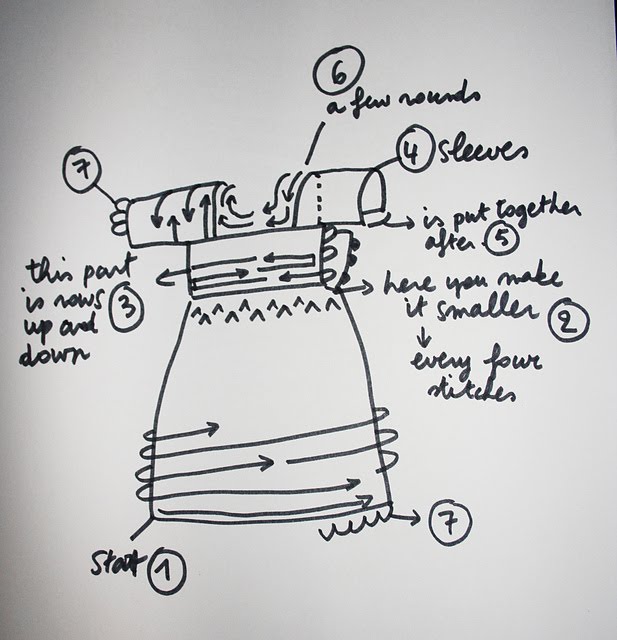 6
a few rounds
7
4 sleeves
is put together
after 5
this part
is rows
up and
down
3
here you make
it smaller
2
every four
stitches
7
Start 1